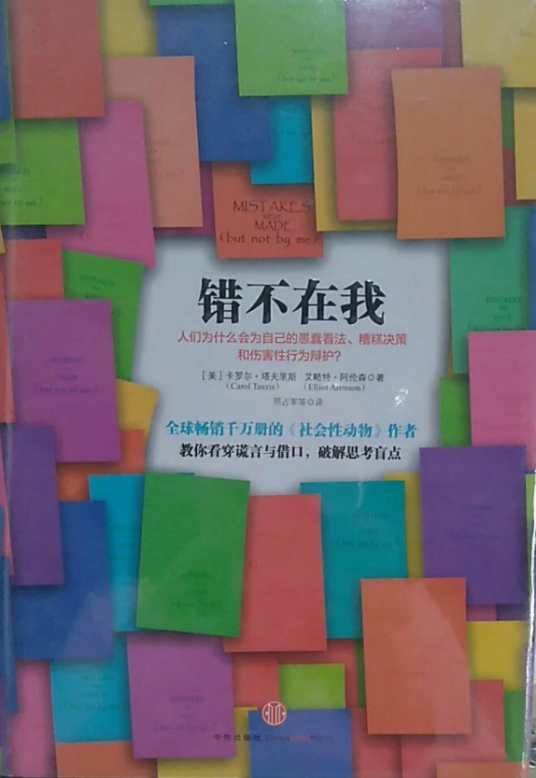 MISTAKES
were
MADE
(but not by me)
错不在我
人们为什么会为自己的愚蠢看法、糟糕决策
和伤害性行为辩护?
[美] 卡罗尔·塔夫里斯 艾略特·阿伦森◎著
(Carol Tavris) (Elliot Aronson)
邢占军等◎译
全球畅销千万册的《社会性动物》作者
教你看穿谎言与借口，破解思考盲点
中信出版社